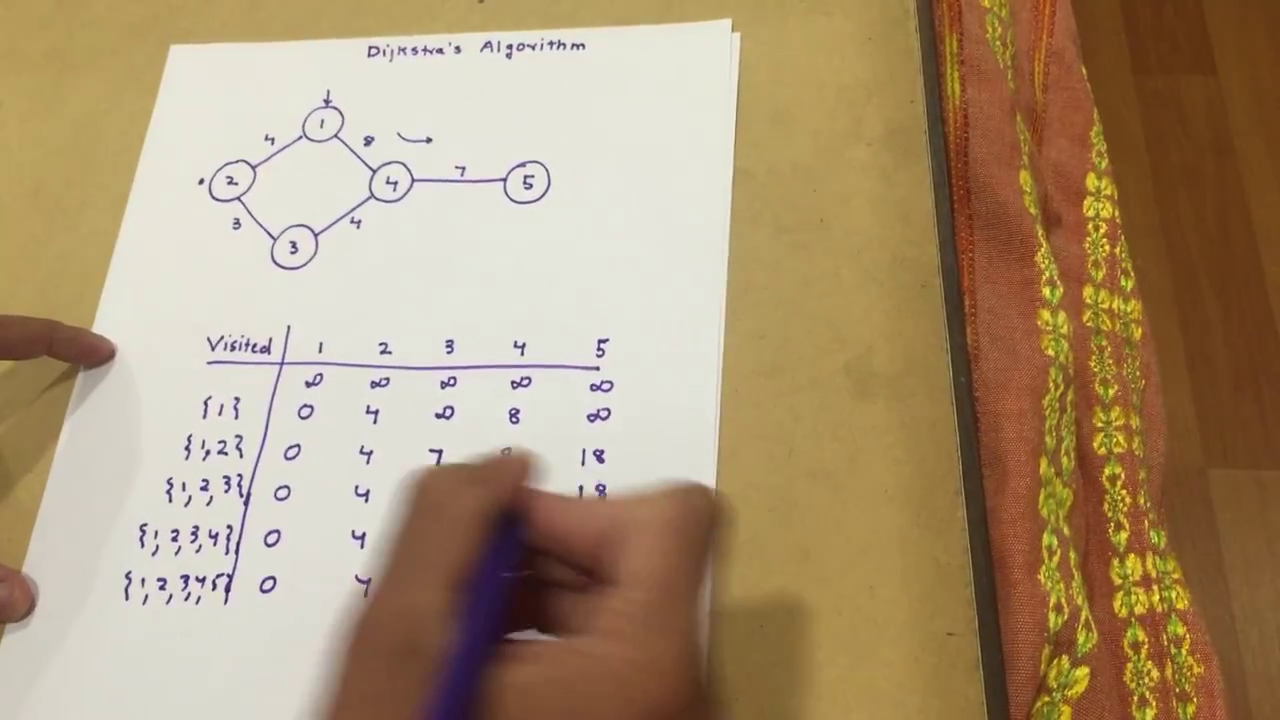 Dijkstra's Algorithm
1
4 8
2 4 7 5
3 4
3
Visited 1 2 3 4 5
∞ ∞ ∞ ∞ ∞
{1} 0 4 ∞ 8 ∞
{1,2} 0 4 7 18
{1,2,3} 0 4 18
{1,2,3,4} 0 4
{1,2,3,4,5} 0 4